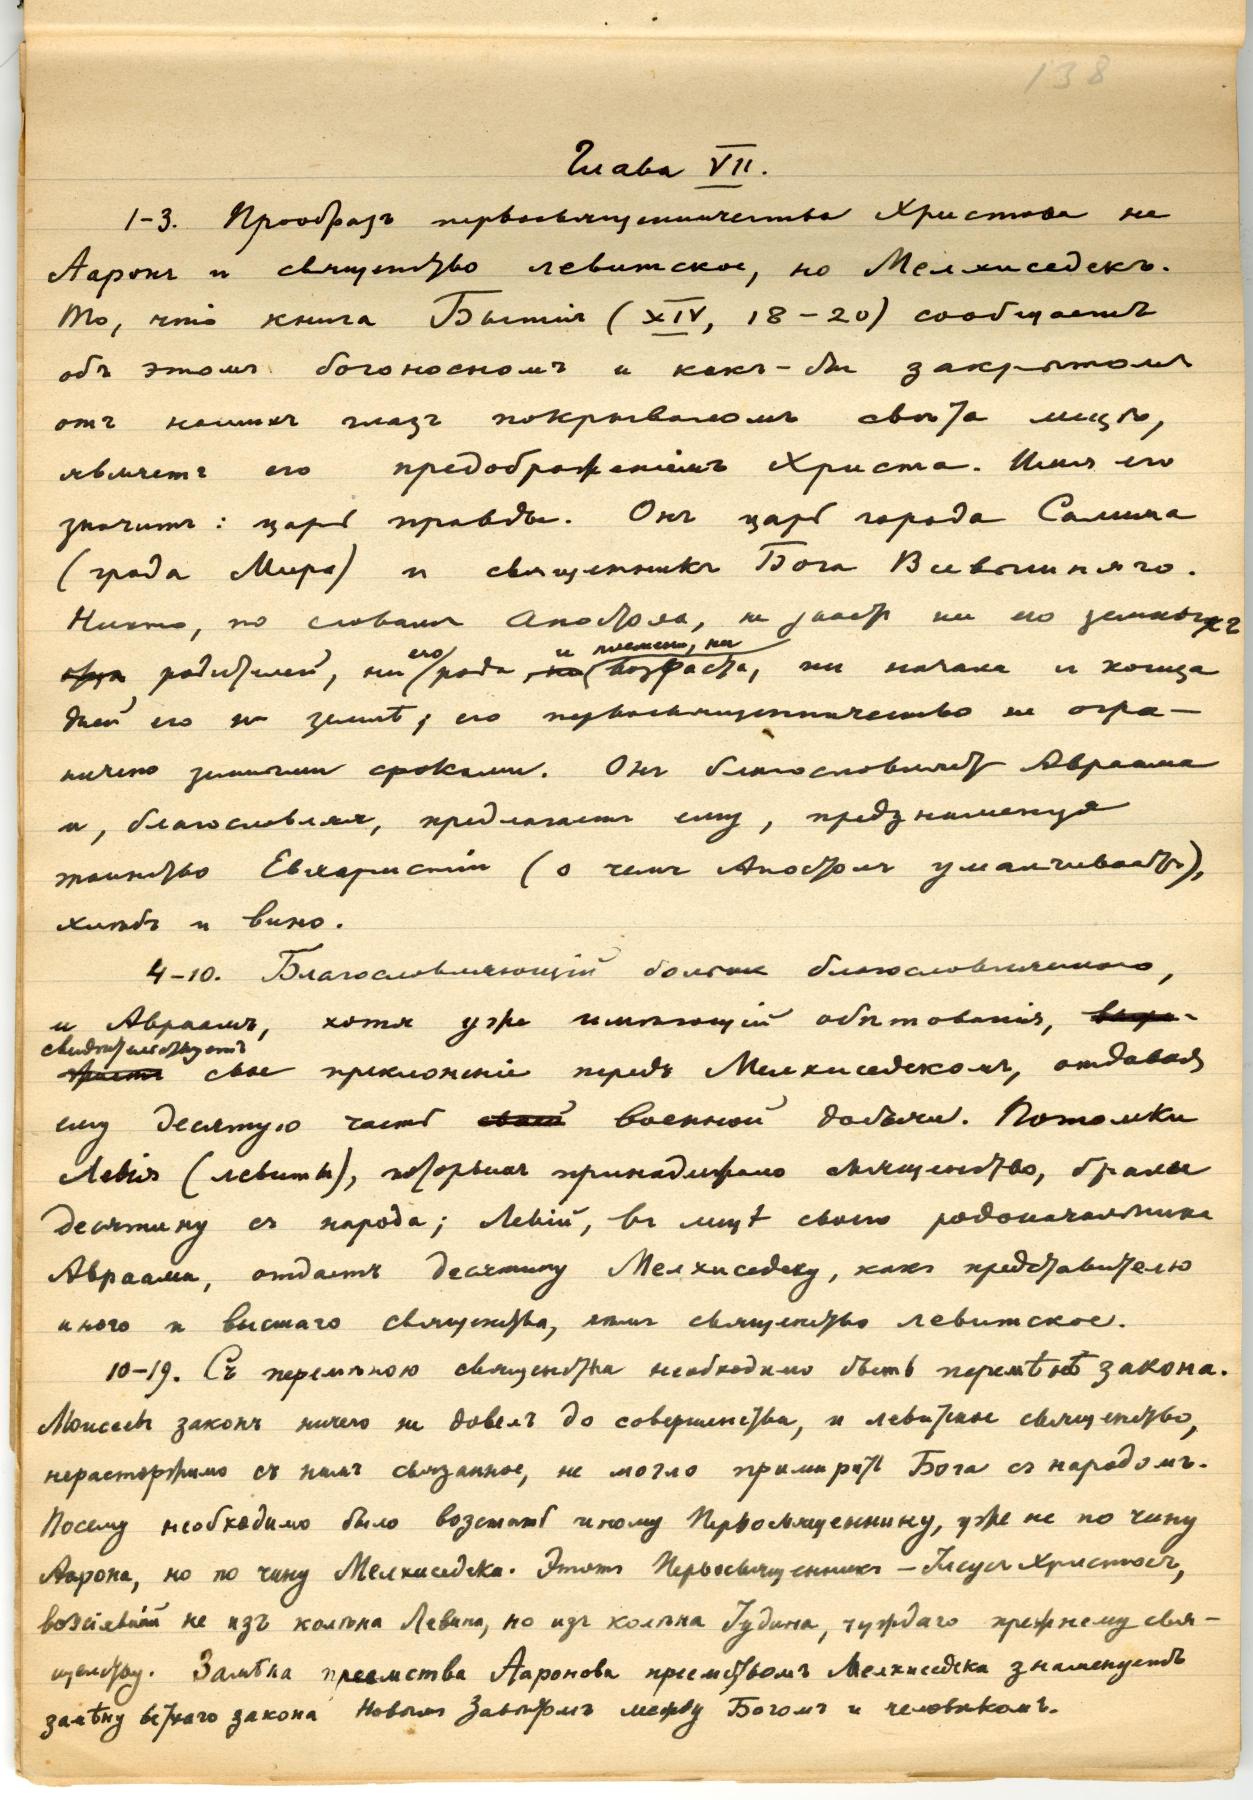 138
Глава VII.
1-3. Прообразъ первосвященничества Христова не
Ааронъ и священство левитское, но Мелхиседекъ.
То, что книга Бытія (XIV, 18-20) сообщаетъ
объ этомъ богоносномъ и какъ-бы закрытомъ
отъ нашихъ глазъ покрываломъ свѣта лицѣ,
являетъ его предображеніемъ Христа. Имя его
значитъ: царь правды. Онъ царь города Салима
(града Мира) и священникъ Бога Всевышняго.
Никто, по словамъ Апостола, не знаетъ ни его земныхъ
родителей, ни его рода и племени, ни возраста, ни начала и конца
дней его на землѣ; его первосвященничество не огра-
ничено земными сроками. Онъ благословляетъ Авраама
и, благословляя, предлагаетъ ему, предзнаменуя
таинство Евхаристіи (о чемъ Апостолъ умалчиваетъ),
хлѣбъ и вино.
4-10. Благословляющій больше благословляемаго,
и Авраамъ, хотя уже имѣющій обѣтованія,
свидѣтельствуетъ свое преклоненіе передъ Мелхиседекомъ, отдавая
ему десятую часть военной добычи. Потомки
Левія (левиты), которымъ принадлежало священство, брали
десятину съ народа; Левій, въ лицѣ своего родоначальника
Авраама, отдаетъ десятину Мелхиседеку, какъ представителю
иного и высшаго священства, чѣмъ священство левитское.
10-19. Съ перемѣною священства необходимо быть перемѣнѣ закона.
Моисеевъ законъ ничего не довелъ до совершенства, и левитское священство,
нерасторжимо съ нимъ связанное, не могло примирить Бога съ народомъ.
Посему необходимо было возстать иному Первосвященнику, уже не по чину
Аарона, но по чину Мелхиседека. Этотъ Первосвященникъ - Іисусъ Христосъ,
возсіявшій не изъ колѣна Левіина, но изъ колѣна Іудина, чуждаго прежнему свя-
щенству. Замѣна преемства Ааронова преемствомъ Мелхиседека знаменуетъ
замѣну ветхаго закона Новымъ Завѣтомъ между Богомъ и человѣкомъ.